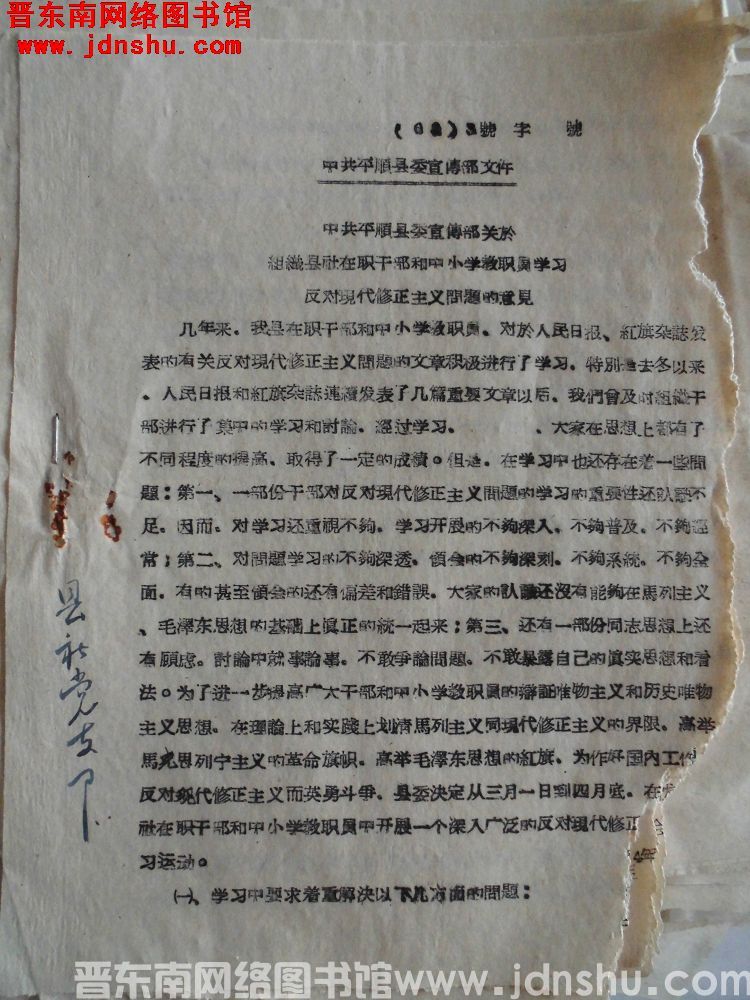 晋东南网络图书馆
www.jdnshu.com
號 字 號
中共平順县委宣傳部文件
中共平順县委宣傳部关於
組織县社在职干部和中小学教职員学习
反对現代修正主义問題的意見
几年来。我县在职干部和中小学教职員。对於人民日报、紅旗杂誌发
表的有关反对現代修正主义問題的文章积极进行了学习。特別是去冬以来
。人民日报和紅旗杂誌連續发表了几篇重要文章以后。我們曾及时組織干
部进行了集中的学习和討論。經过学习。 、大家在思想上都有了
不同程度的提高。取得了一定的成績。但是。在学习中也还存在着一些問
題：第一、一部份干部对反对現代修正主义問題的学习的重要性还认識不
足。因而。对学习还重視不夠。学习开展的不夠深入。不夠普及。不夠經
常；第二、对問題学习的不夠深透。領会的不夠深刻。不夠系統。不夠全
面。有的甚至領会的还有偏差和錯誤。大家的认識还沒有能夠在馬列主义
、毛澤东思想的基础上真正的統一起来；第三、还有一部份同志思想上还
有顧虑。討論中就事論事。不敢爭論問題。不敢暴露自己的真实思想和看
法。为了进一步提高广大干部和中小学教职員的辯証唯物主义和历史唯物
主义思想。在理論上和实践上划清馬列主义同現代修正主义的界限。高举
馬克思列宁主义的革命旗帜。高举毛澤东思想的紅旗。为作好国内工作
反对現代修正主义而英勇斗爭。县委决定从三月一日到四月底。在
社在职干部和中小学教职員中开展一个深入广泛的反对現代修正
习运动。
㈠、学习中要求着重解决以下几方面的問題：
县社党支部
晋东南网络图书馆www.jdnshu.com